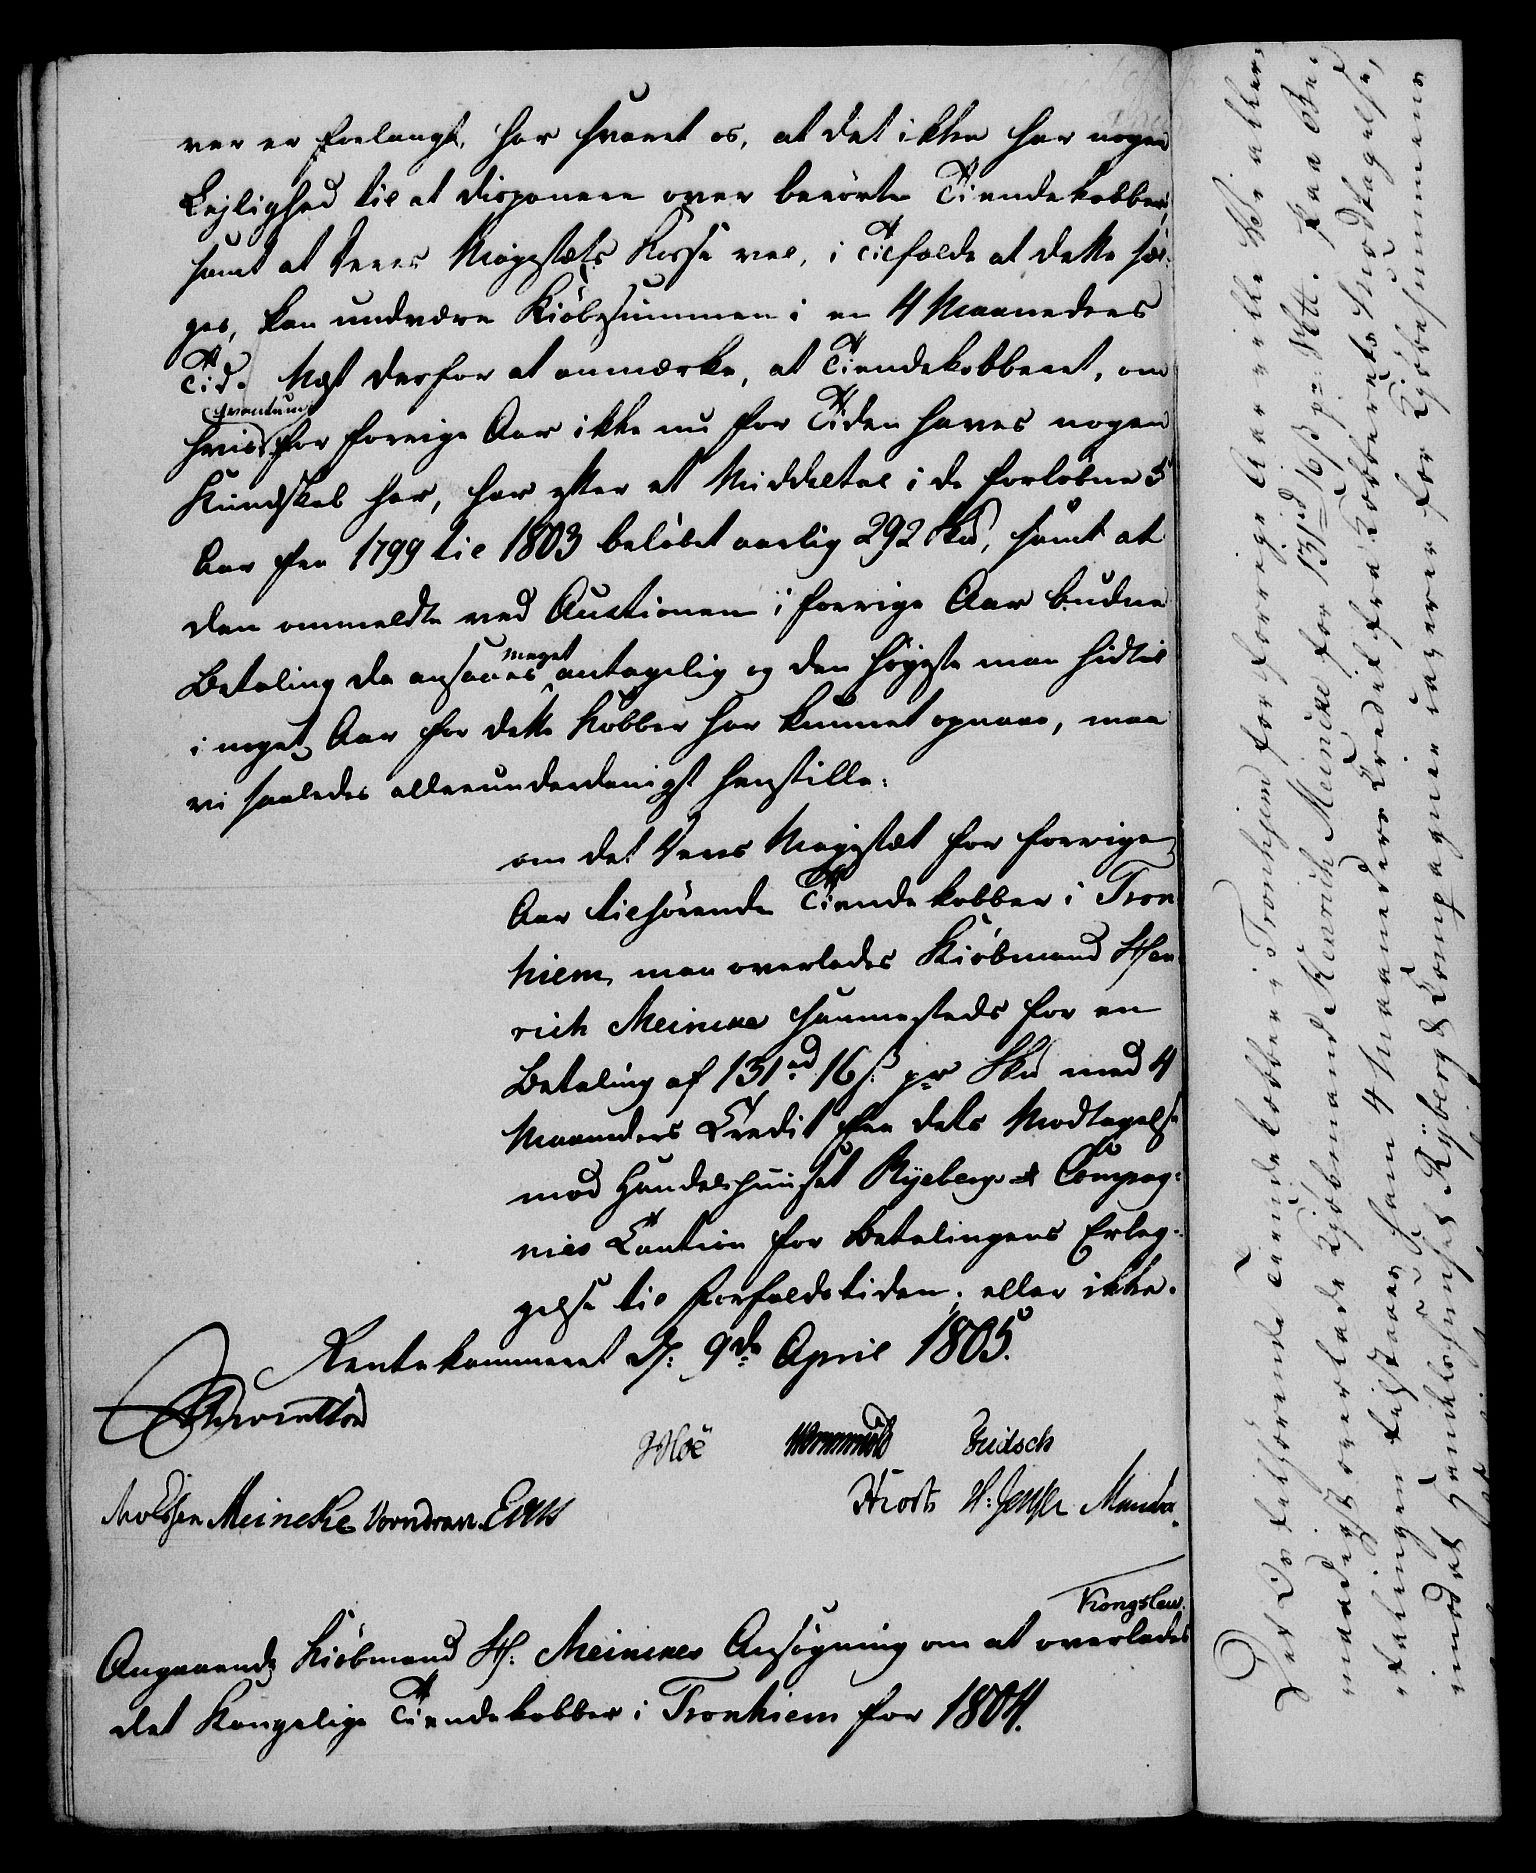 ver er forlangt, har svaret os, at det ikke har nogen
Lejlighed til at disponere over berørte Tiendekobber,
samt at Deres Majestæts Kasse vel, i Tilfælde at dette sæl-
ges, kan undvære Kiøbesummen i en 4 Maaneders
Tid. Næst derfor at anmærke, at Tiendekobberet, om
hvis Qvantum for forrige Aar ikke nu for Tiden haves nogen
Kundskab her, har efter et Middeltal i de forløbne 5
Aar fra 1799 til 1803 beløbet aarlig 292 Sk℔, samt at
den ommeldte ved Auctionen i forrige Aar budne
Betaling da ansaaes meget antagelig og den høyeste man hidtil
i noget Aar for dette Kobber har kunnet opnaae, maa
vi saaledes allerunderdanigst henstille:
om det Deres Majestæt for forrige
Aar tilhørende Tiendekobber i Tron
hiem, maa overlades Kiøbmand Hen
rich Meincke sammesteds for en
Betaling af 131 rd 16 s. pr Sk℔ med 4
Maaneders Credit fra dets Modtagelse
mod Handelshuuset Ryeberg & Compag-
nies Caution for Betalingens Erleg-
gelse til Forfaldstiden; eller ikke.
Rentekammeret d: 9de April 1805.
Reventlow
Moe Wormskiold Fritsch
Meincke Vorndran
Hiort H: Jensen
Kongslew.
Angaaende Kiøbmand H. Meinckes Ansøgning om at overlades
det Kongelige Tiendekobber i Tronhiem for 1804.
Det Os tilhørende Tiendekobber i Tronhjem for forrige Aar ville Vi aller-
naadigst overlade Kjøbmand Henrich Meincke for 131 rd 16 ß pr Sk℔. Paa Be-
talingen tilstaaes ham 4 Maaneders Credit fra Kobberets Modtagelse,
imod at Handelshuuset Ryberg & Compagnie caverer for Kjøbesummens